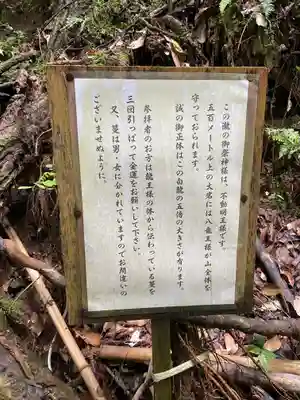 この瀧の御祭神様は、不動明王様です。
五百メートル上の大岩には八龍王様が山全体を
守っておられます。
試の御正体はこの白龍の五倍の大きさが有ります。
参拝者のお方は龍王様の体から伝わっている蔓を
三回引っぱって金運をお願いして下さい。
又、蔓は男・女に分かれていますのでお間違いの
ございませぬように。